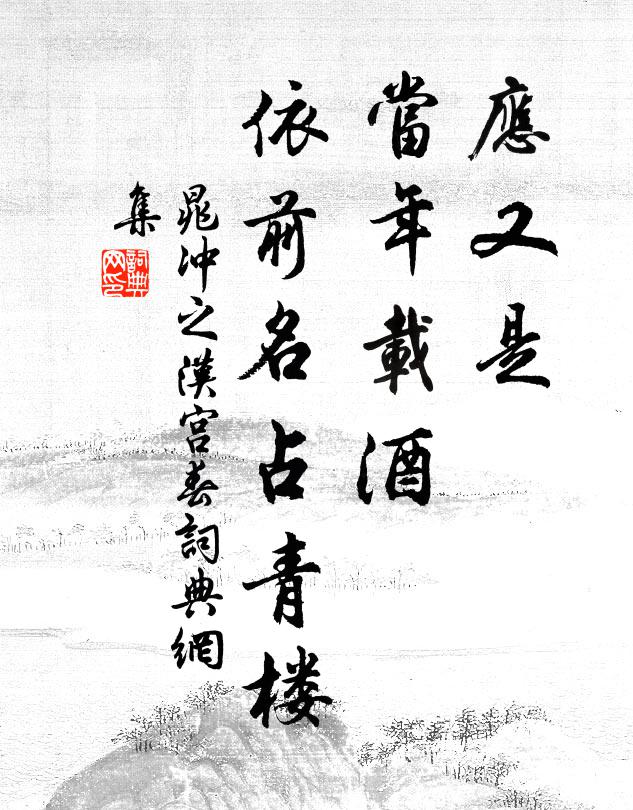 應又是
當年載酒
依前名占青楼
晁冲之漢宮春詞典網
集
詞典
网印